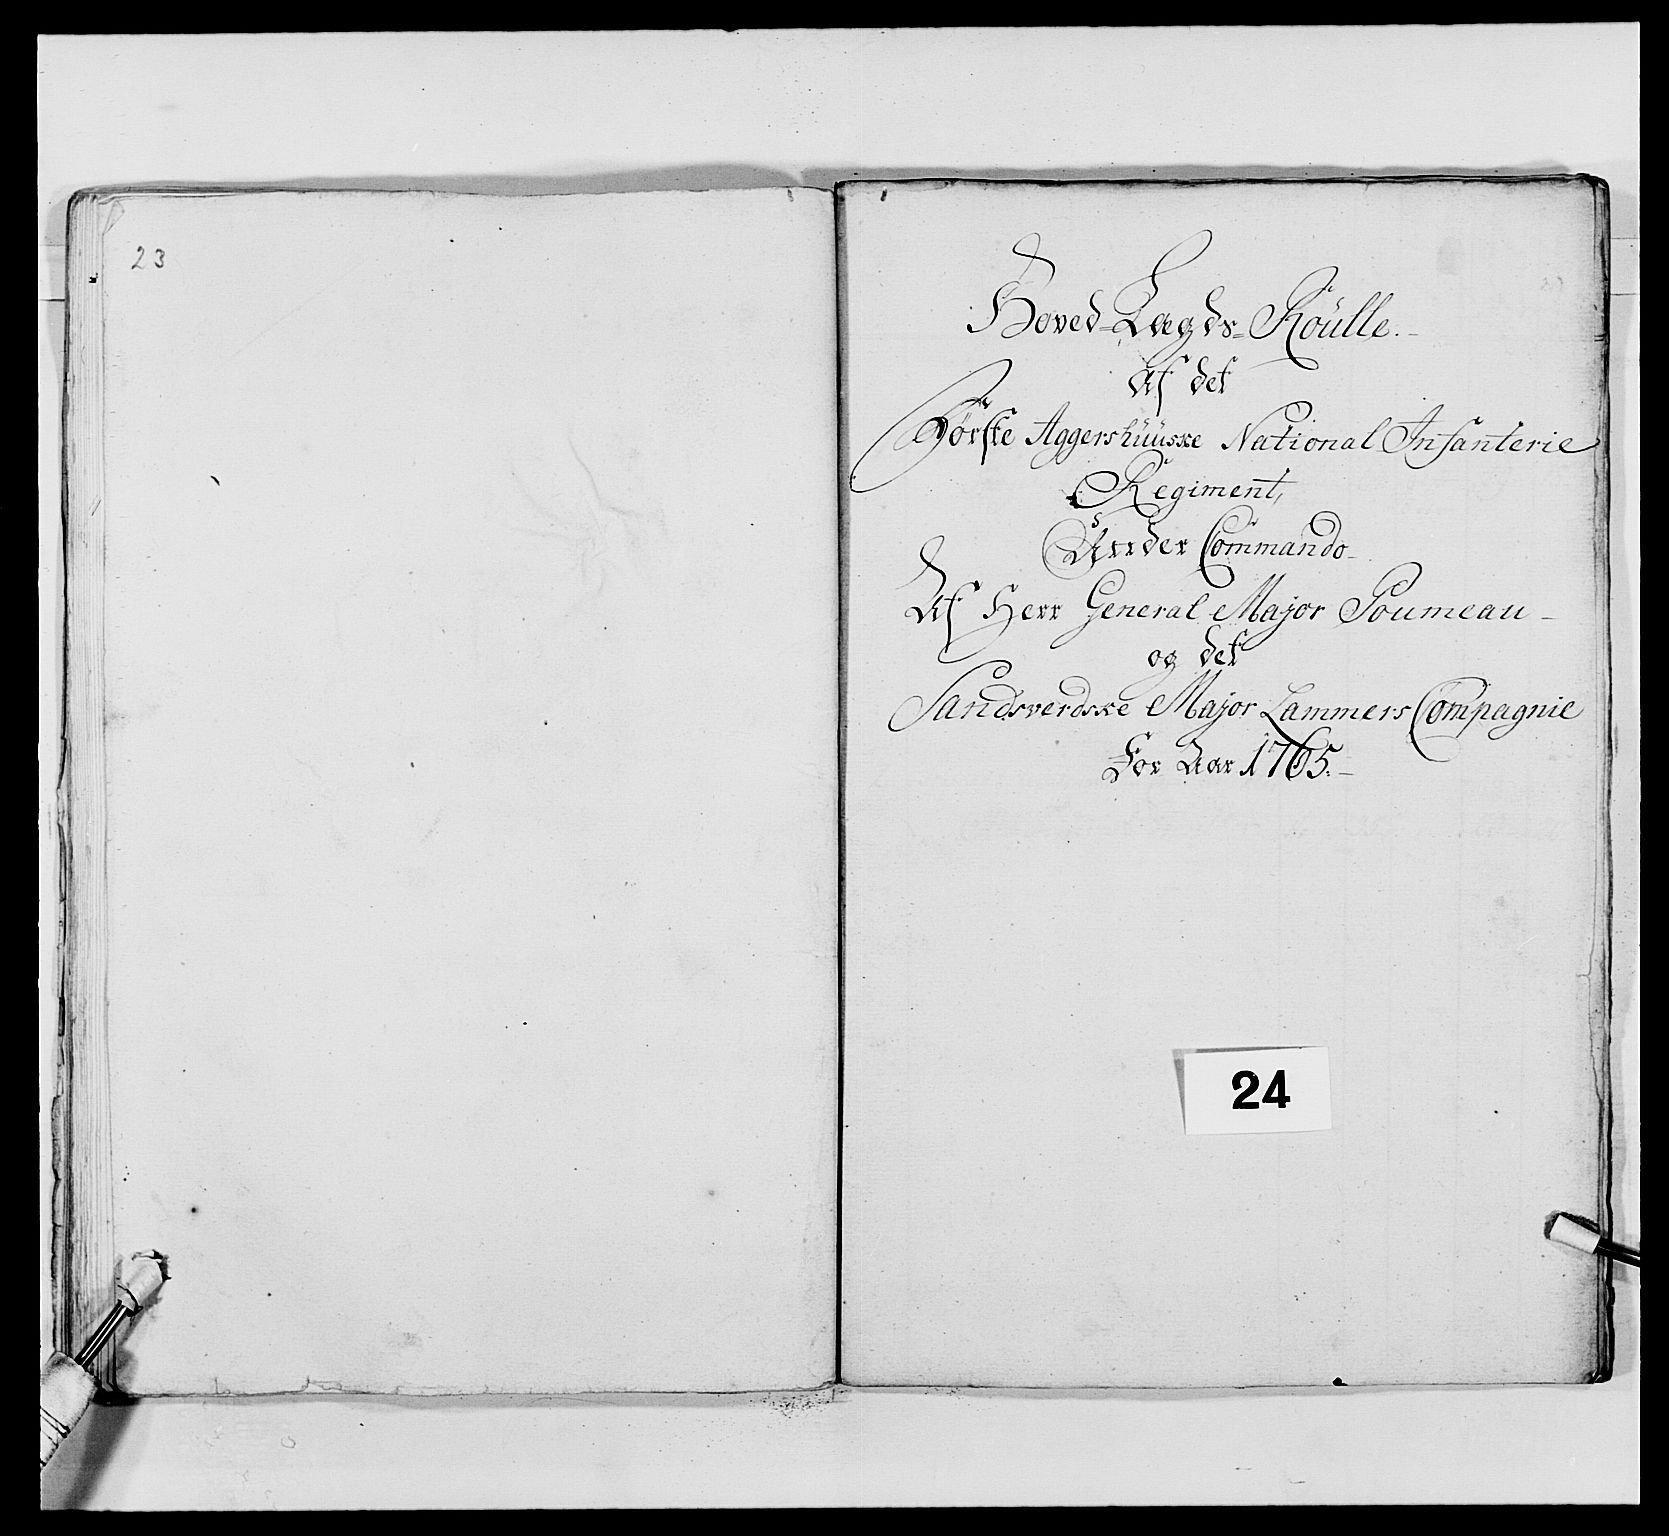 23
Hoved-Lægds-Roülle.-
Af det
Förste Aggershüüske National Infanterie
Regiment,
Ünder Commando-
Af Herr General Major Poumeau-
og det
Sandsverdske Major Lammers Compagnie
For Aar 1765.-
24